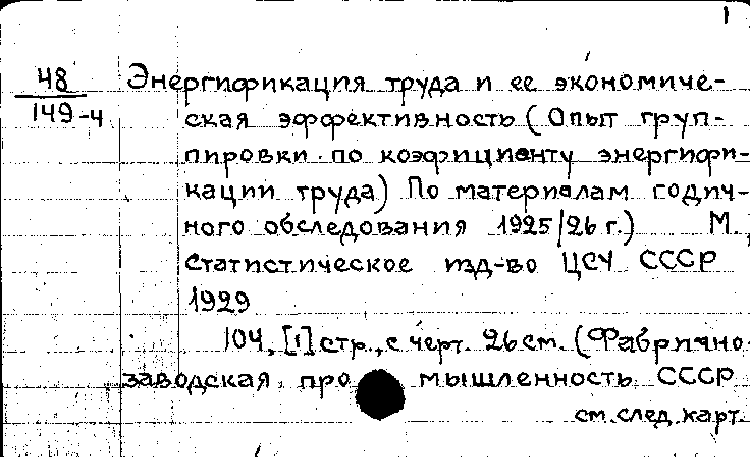 1
48 Энергификация труда и ее экономиче-
149-4 ская эффективность (Опыт груп-
пировки по коэфициенту энергифи-
кации труда) По материалам годич-
ного обследования 1925/26 г.) М.,
Статистическое изд-во ЦСУ СССР
1929
104, [1] стр., с черт. 26 см. (Фабрично-
заводская про мышленность СССР
см. след. карт.